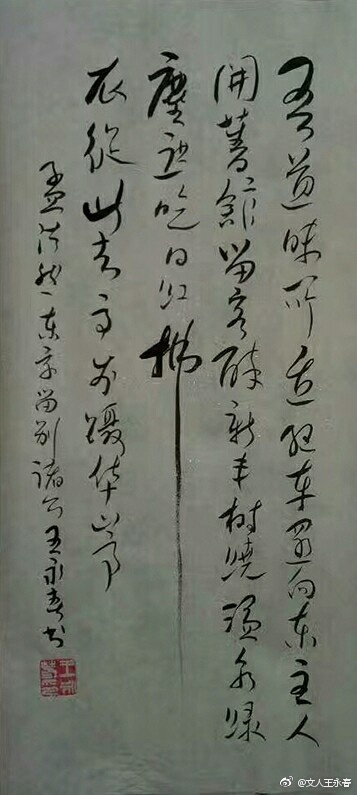 吾道昧所适驱车還向东主人
開舊館留客醉新丰树繞温泉绿
塵遮晚日红拂
衣從此去高步蹑华嵩
孟浩然东京留别諸公王永春书
@文人王永春